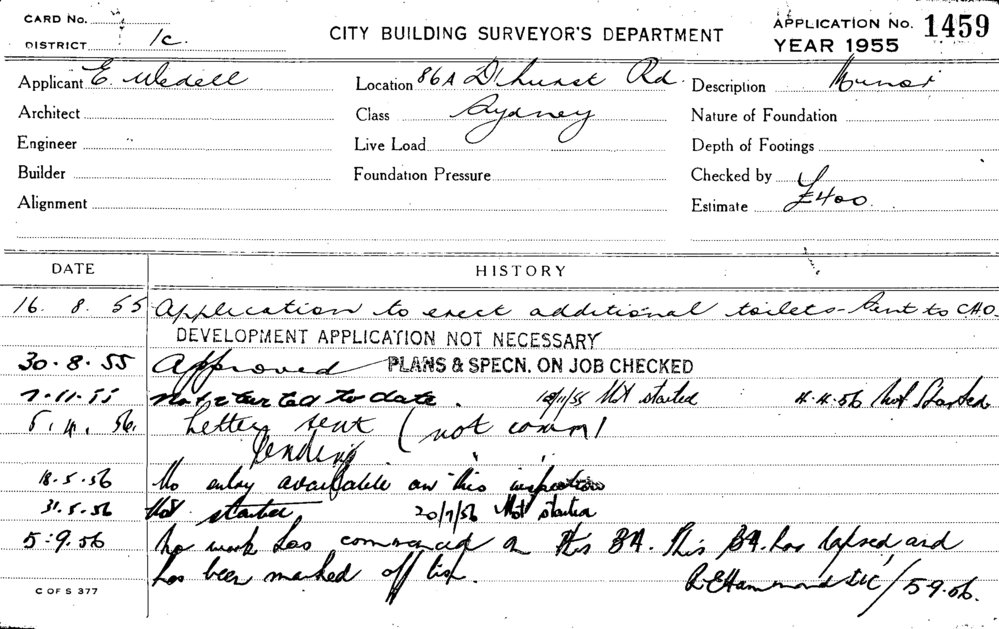 CARD No.
DISTRICT 1c.
CITY BUILDING SURVEYOR'S DEPARTMENT
APPLICATION No. 1459
YEAR 1955
Applicant E. Wedell Location 86A D'hurst Rd. Description Minor
Architect Class Sydney Nature of Foundation
Engineer Live Load Depth of Footings
Builder Foundation Pressure Checked by
Alignment Estimate £400.
DATE HISTORY
16. 8. 55 Application to erect additional toilets - Sent to CHO.
DEVELOPMENT APPLICATION NOT NECESSARY
30.8.55 Approved PLANS & SPECN. ON JOB CHECKED
7.11.55 Not started to date. /11/55 Not started 4.4.56 Not Started
5.4.56. Letter sent (not comm)
Pending
18.5.56 No entry available on this inspection
31.5.56 Not started 20/7/56 Not started
5.9.56 No work has commenced on this BA. This BA. has lapsed and
has been marked off list.
R.E Hammond / 5.9.56.
C OF S 377